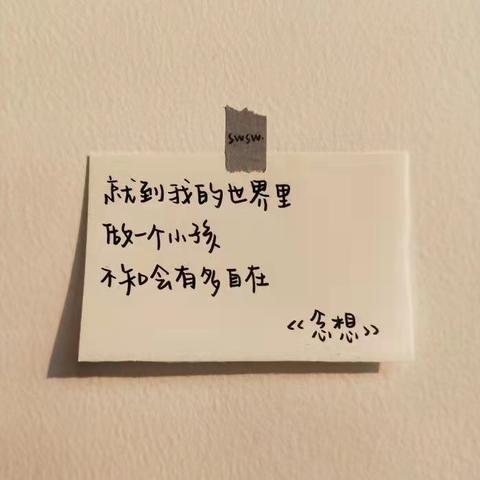 swsw.
就到我的世界里
做一个小孩
不知会有多自在
《念想》